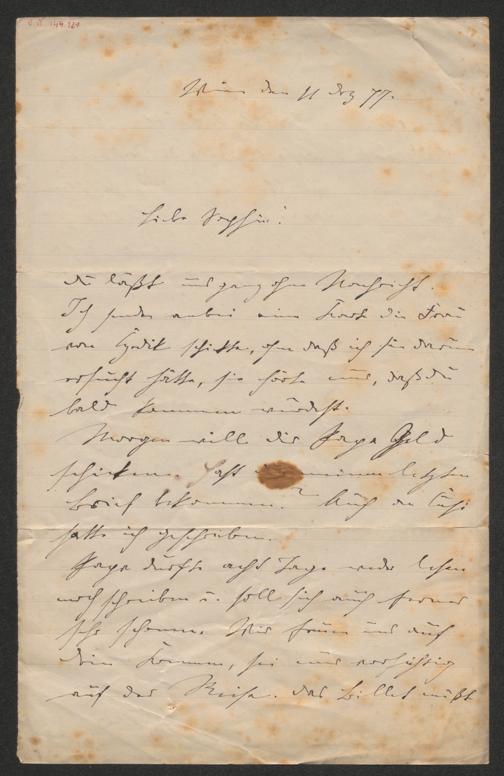 Wien den 11 Dez 77.
Liebe Sophie!
Du läßt uns ganz ohne Nachricht.
Ich sende anbei eine Karte die Frau
von Hadik schickte, ohne daß ich sie darum
ersucht hätte, sie hörte nur, daß du
bald kommen würdest.
Morgen will dir Papa Geld
schicken. Hast meinen letzten
Brief bekommen? Auch an
hatte ich geschrieben.
Papa durfte acht Tage weder lesen
noch schreiben u. soll sich auch ferner
sehr schonen. Wir freuen uns auf
dein Kommen, sei nur vorsichtig
auf der Reise. Das Billet müßt